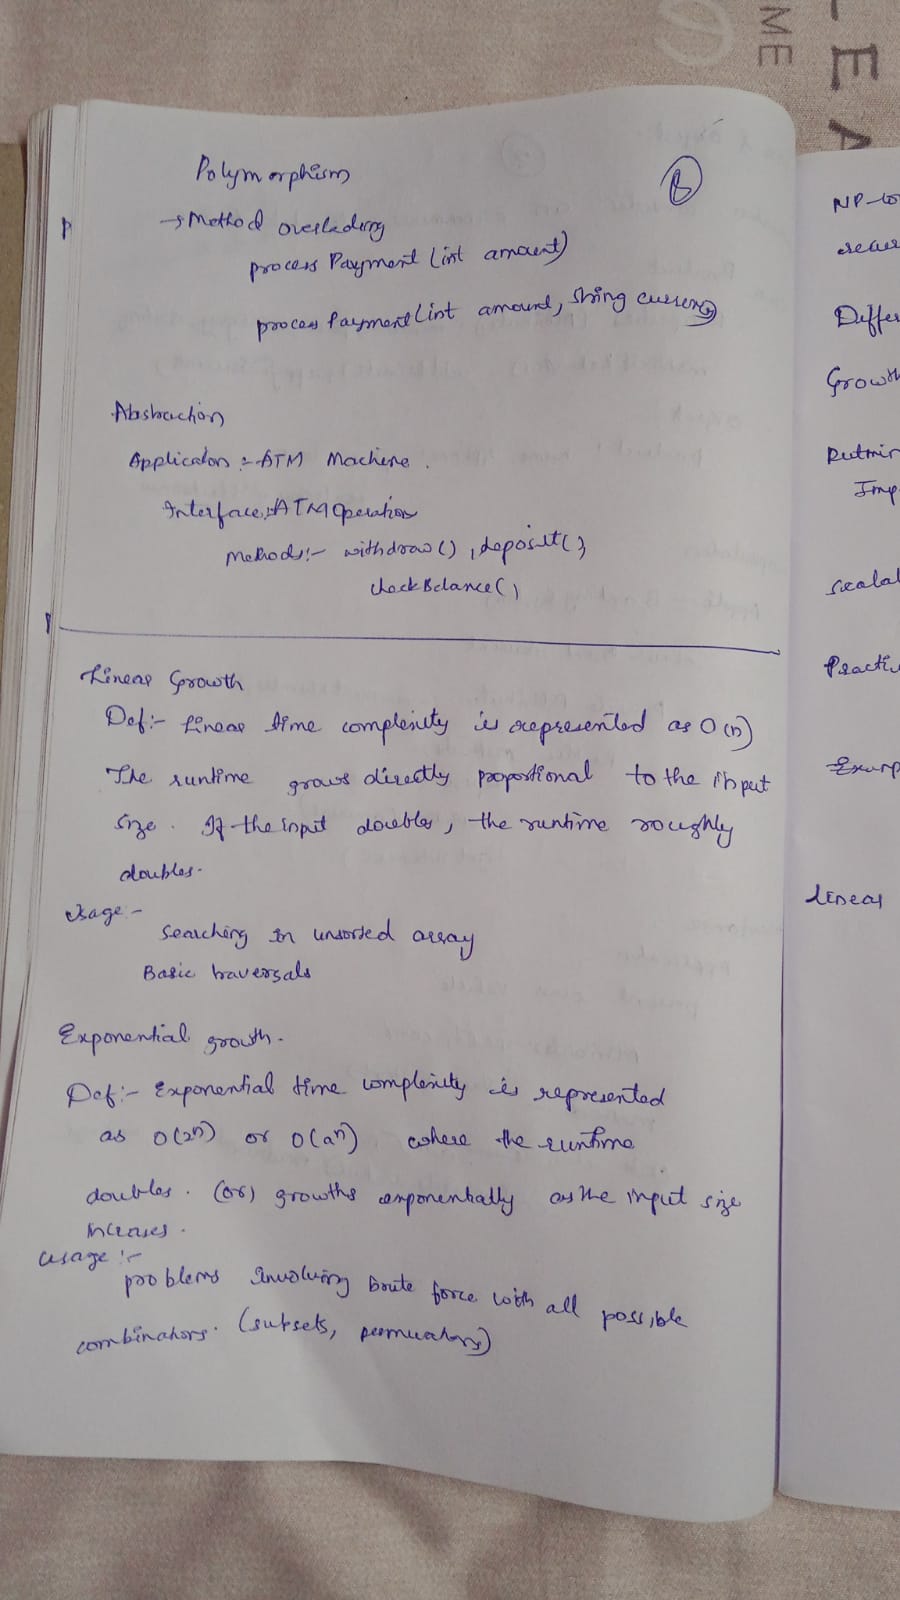 Polymorphism
→ Method overloading
process Payment (int amount)
process Payment (int amount, string currency)
Abstraction
Application :- ATM Machine.
Interface :- ATM Operation
Methods :- withdraw(), deposit(),
checkBalance()
Linear Growth
Def :- Linear time complexity is represented as O(n)
The runtime grows directly proportional to the input
size. If the input doubles, the runtime roughly
doubles.
Usage :-
Searching in unsorted array
Basic traversals
Exponential growth.
Def :- Exponential time complexity is represented
as O(2ⁿ) or O(aⁿ) where the runtime
doubles. (or) growths exponentially as the input size
increases.
usage :-
problems involving brute force with all possible
combinations. (subsets, permutations)
NP-
Differ
Growth
Runtime
Imp
Scalal
Practi
Examp
linear
ME
LEA